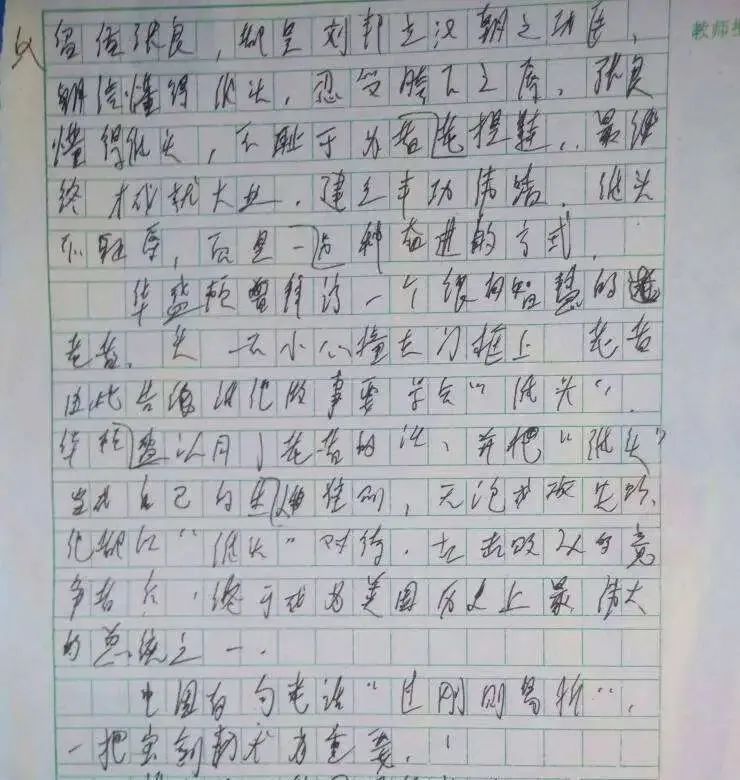 韩信张良，都是刘邦立汉朝之功臣，
韩信懂得低头，忍受胯下之辱，张良
懂得低头，不耻于为老者提鞋，最
终才成就大业，建立丰功伟绩。低头
不耻辱，而是一种奋进的方式。
华盛顿曾拜访一个很有智慧的
老者，头一不小心撞在门框上，老者
因此告诫他做事要学会“低头”，
华盛顿认同了老者的话，并把“低头”
当成自己的生准则，无论成败失
他都以“低头”对待，在击败的竞
争者后，终于成为美国历史上最伟大
的总统之一。
中国有句老话“过刚则易折”，
一把宝剑韧尤为重要，
教师